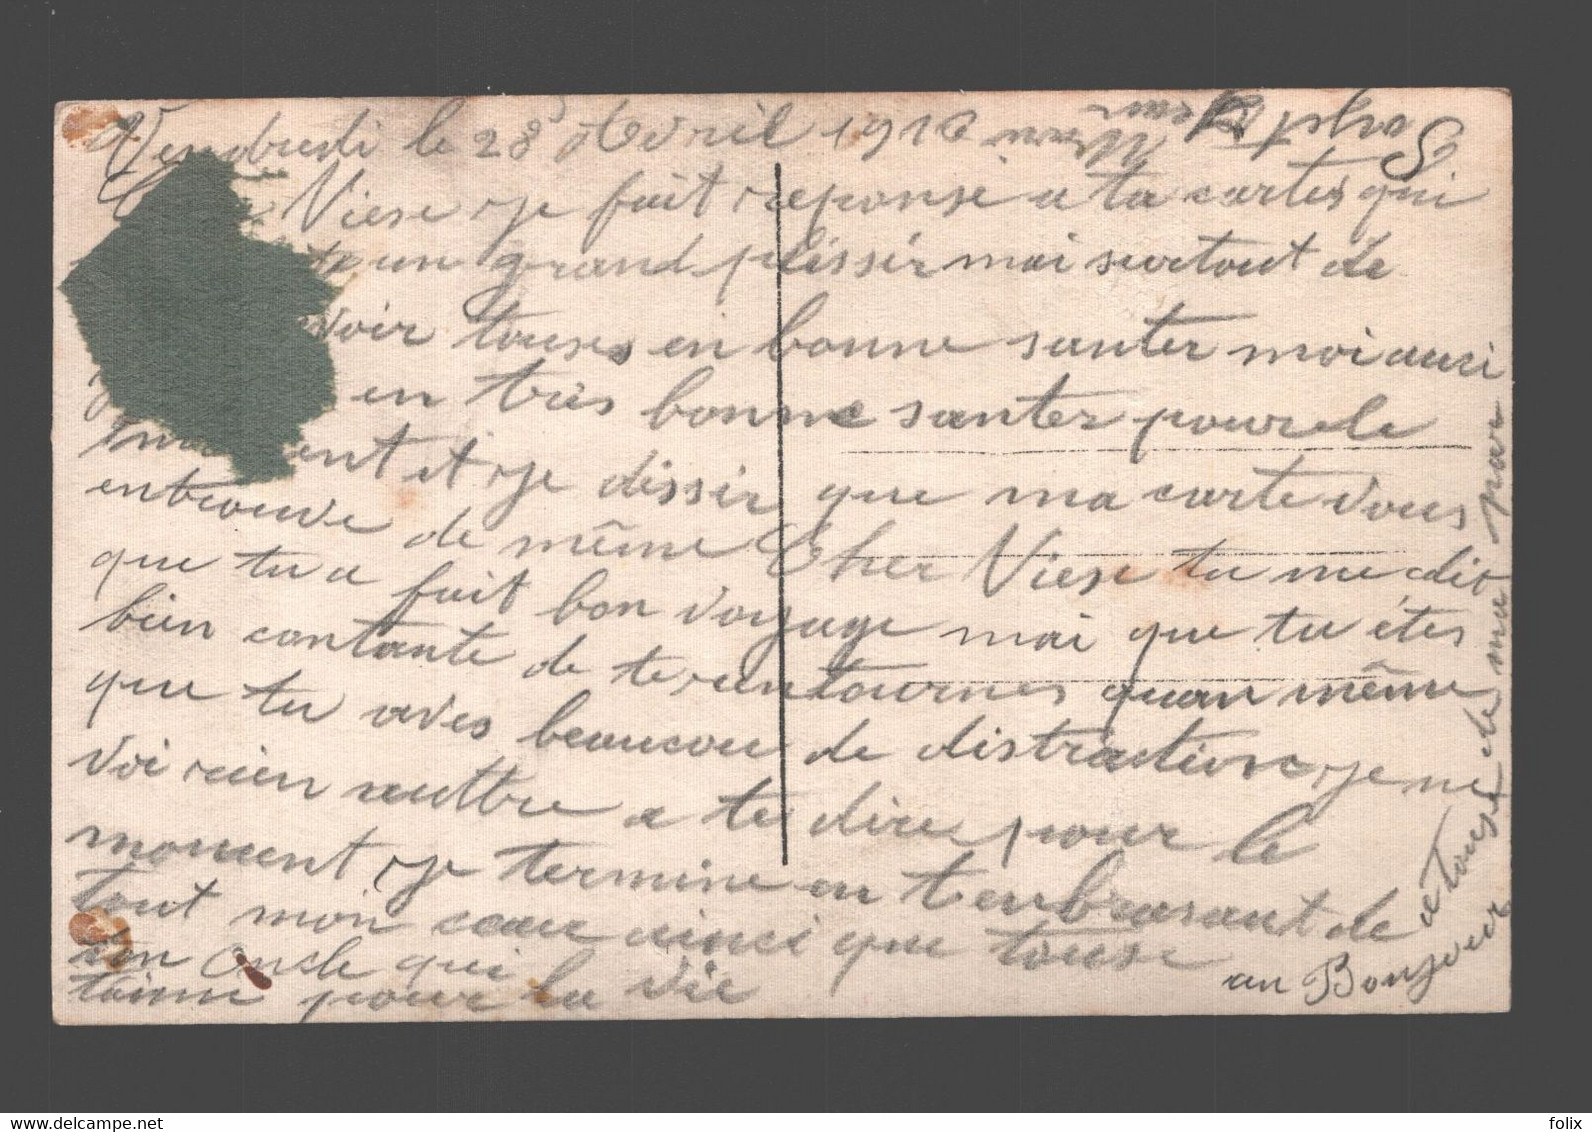 Vendredi le 28 Avril 1916
Viese je fait reponse a ta cartes qui
un grand plissir mai surtout de
voir touses en bonne santer moi aussi
en très bonne santer pour le
moment et je dissir que ma carte vous
entrouve de même Cher Viese tu me dit
que tu a fait bon voyage mai que tu étes
bien contante de te runtournes quan même
que tu aves beaucou de distriction je ne
voi rien auttre a te dire pour le
moment je termine en tenbrasant de
tout mon cœur ainci que touse
ton Oncle qui
taime pour la vie
un Bonjour
a touse de ma par
delcampe.net
folix